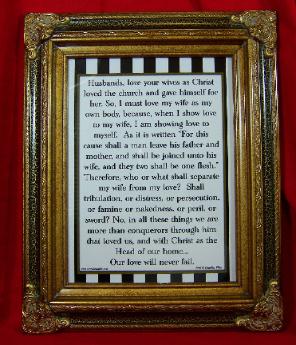 Husbands, love your wives as Christ
loved the church and gave himself for
her. So, I must love my wife as my
own body, because, when I show love
to my wife, I am showing love to
myself. As it is written "For this
cause shall a man leave his father and
mother, and shall be joined unto his
wife, and they two shall be one flesh."
Therefore, who or what shall separate
my wife from my love? Shall
tribulation, or distress, or persecution,
or famine or nakedness, or peril, or
sword? No, in all these things we are
more than conquerors through him
that loved us, and with Christ as the
Head of our home...
Our love will never fail.